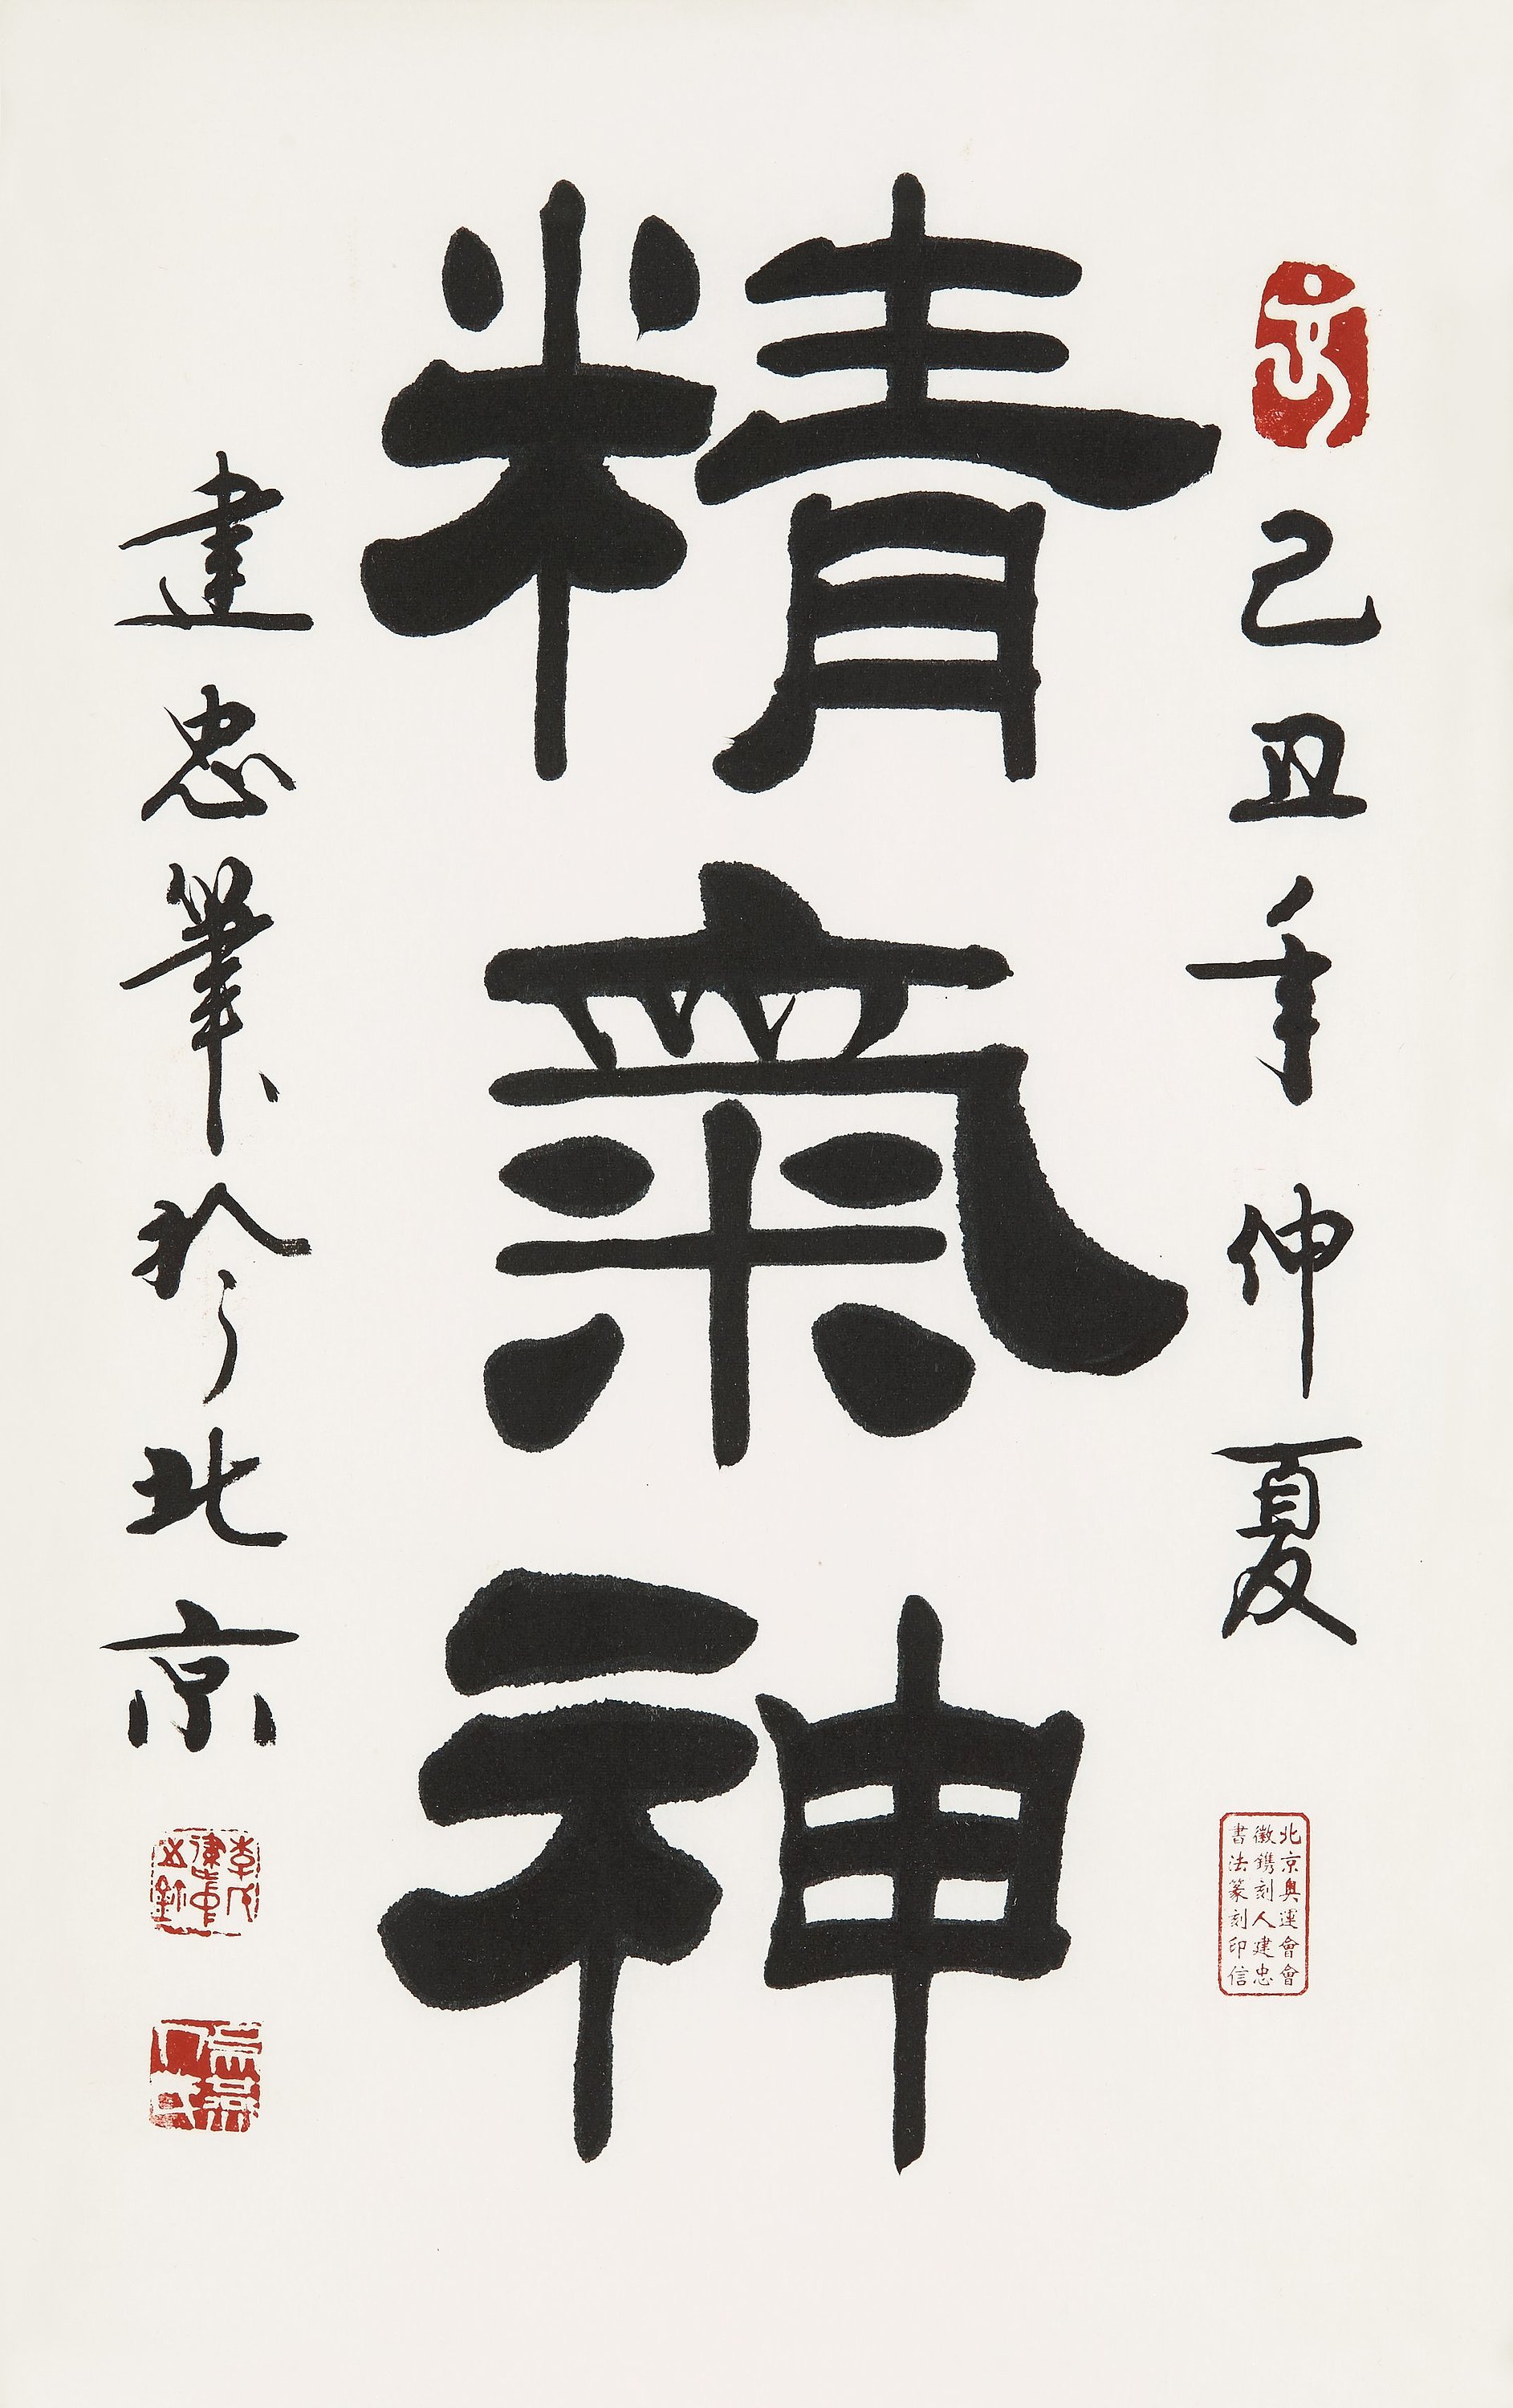 己丑年仲夏
北京奧運會會
徽鐫刻人建忠
書法篆刻印信
精氣神
建忠筆於北京